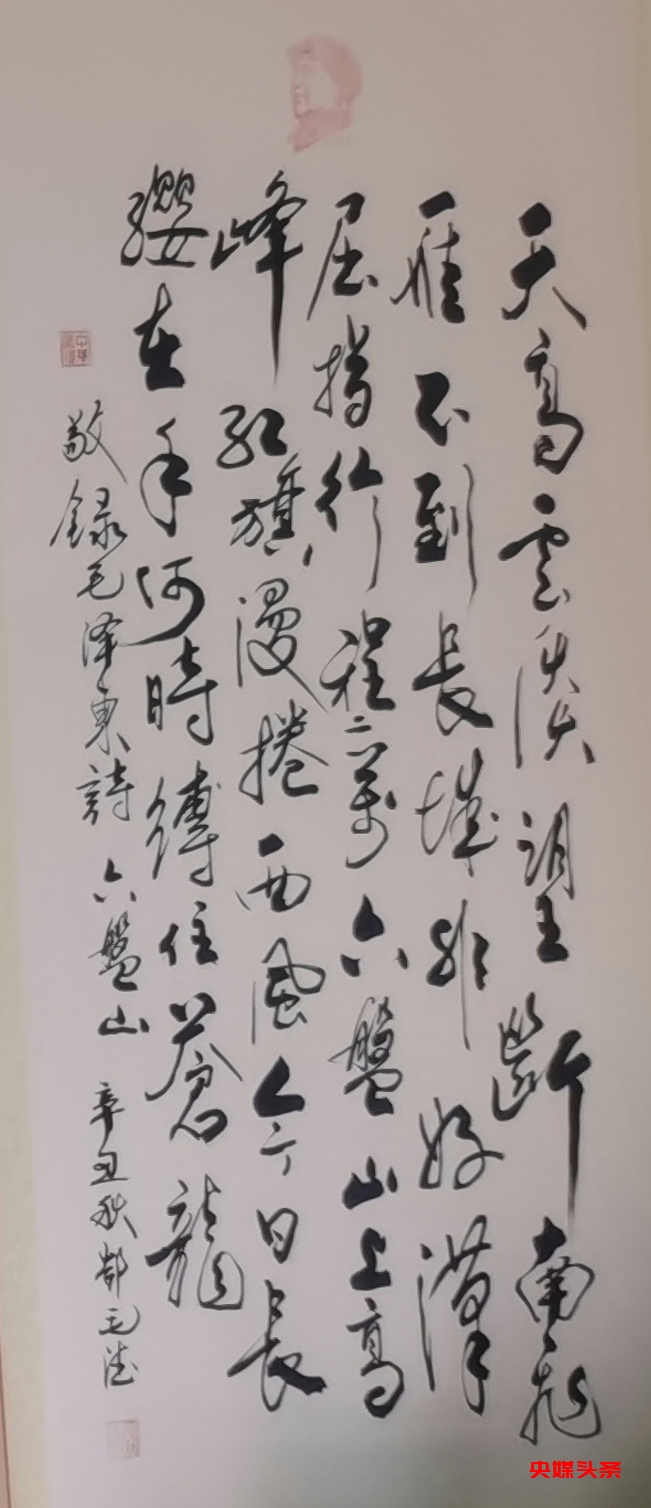 天高雲淡望斷南飛
雁不到長城非好漢
屈指行程二萬六盤山上高
峰紅旗漫捲西風今日長
纓在手何時縛住蒼龍
敬録毛泽東詩 六盤山 辛丑秋
央媒头条